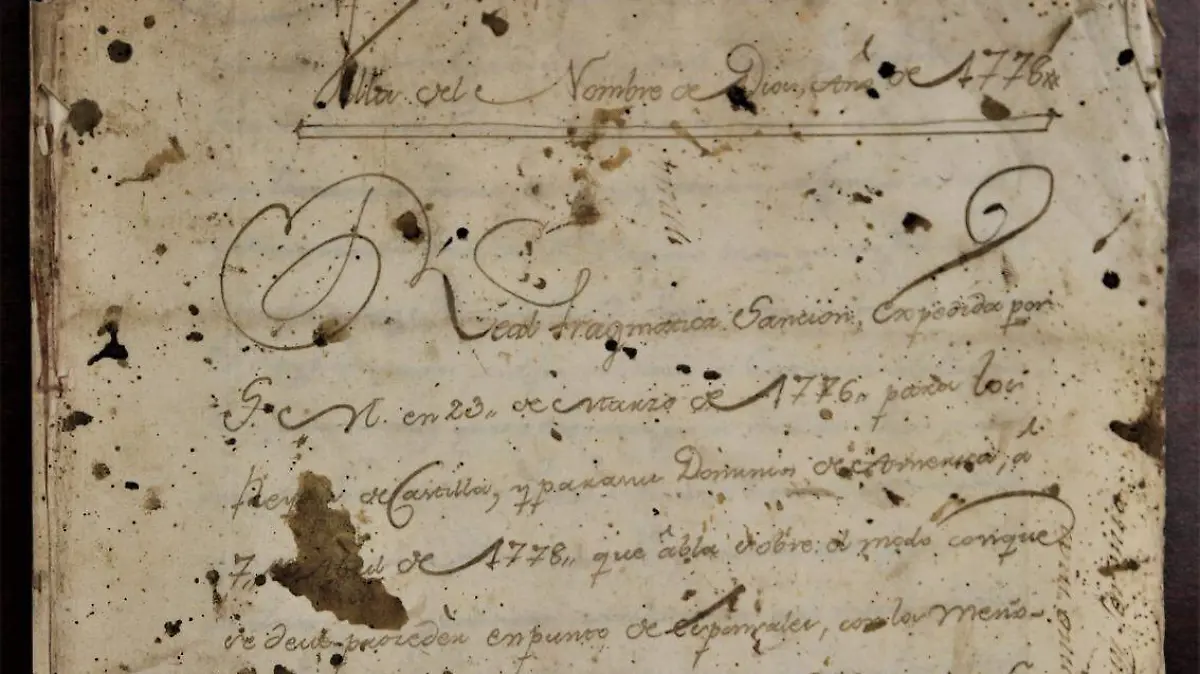 Villa del Nombre de Dios, Año de 1778
Real Pragmatica Sancion, Expedida por
S. M. en 23,, de Marzo de 1776,, para los
Reynos de Castilla, y para sus Dominios de America, á
7,, de Abril de 1778,, que âbla sobre el modo conque
se deve proceder en punto de esponsales, con los Meno-